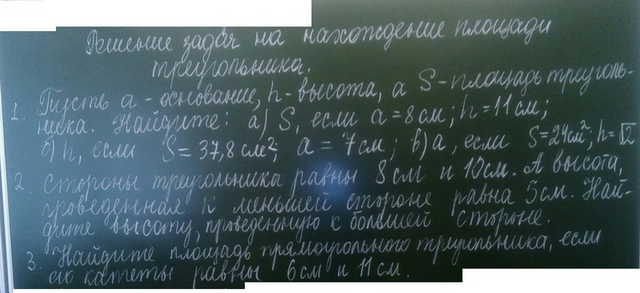 Решение задач на нахождение площади
треугольника.
1. Пусть a - основание, h - высота, а S - площадь треуголь-
ника. Найдите: а) S, если a = 8 см; h = 11 см;
б) h, если S = 37,8 см²; a = 7 см; в) a, если S = 24 см²; h = √2
2. Стороны треугольника равны 8 см и 10 см. А высота,
проведенная к меньшей стороне равна 5 см. Най-
дите высоту, проведенную к большей стороне.
3. Найдите площадь прямоугольного треугольника, если
его катеты равны 6 см и 11 см.